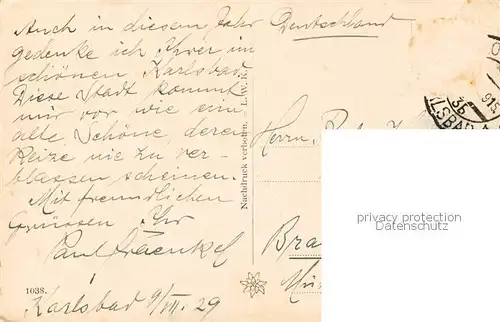 Auch in diesem Jahr
gedenke ich Ihrer im
schönen Karlsbad.
Diese Stadt kommt
mir vor wie eine
alte Schöne deren
Reize nie zu ver-
blassen scheinen.
Mit freundlichen
Grüssen Ihr
Paul Fraenkel
1038.
Karlsbad 9/VII. 29
Nachdruck verboten. – L. W. K.
Deutschland
Herrn
privacy protection
Datenschutz
Bra